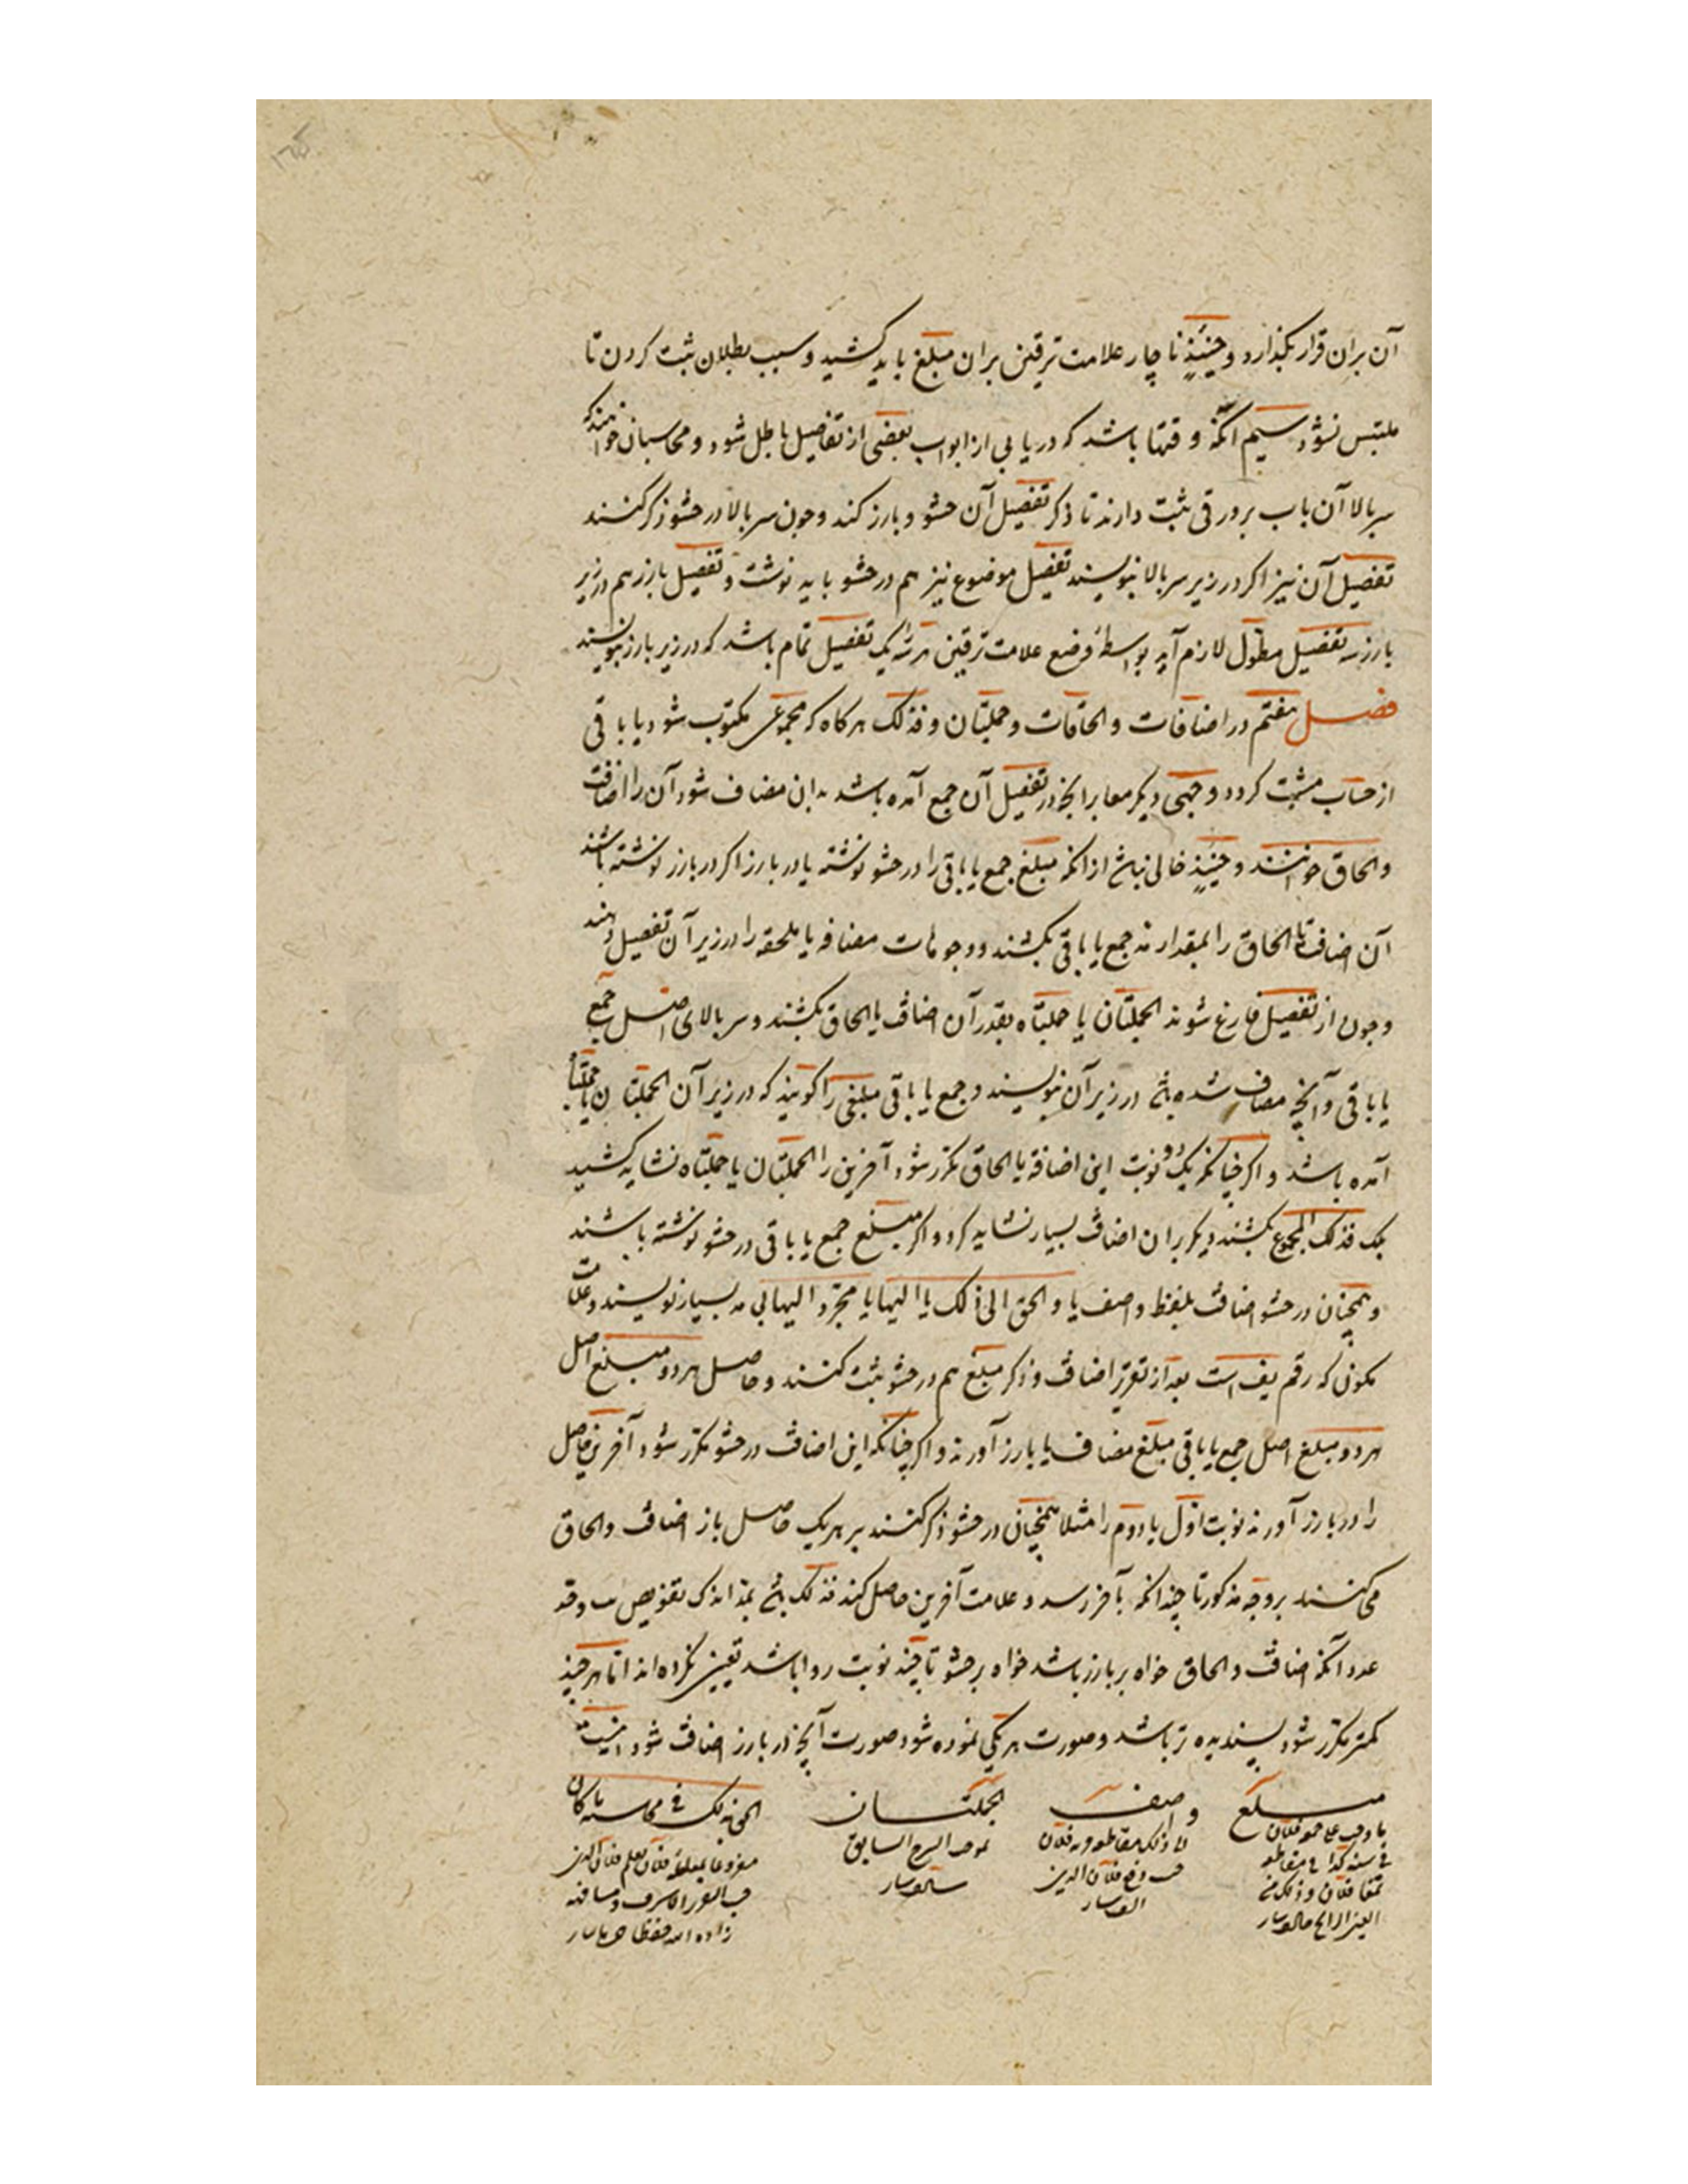 آن بران قرار بگذارد و حینئذٍ ناچار علامت ترقین بران مبلغ باید کشید و سبب بطلان ثبت کردن تا
ملتبس نشود سیم آنکه وقتها باشد که در بابی از ابواب بعضی از تفاصیل باطل شود و محاسبان خواهند که
سربالا آن باب بر ورقی ثبت دارند تا ذکر تفصیل آن حشو و بارز کند و چون سربالا در حشو ذکر کنند
تفصیل آن نیز اکر در زیر سربالا بنویسند تفصیل موضوع نیز هم در حشو باید نوشت و تفصیل بارز هم در زیر
بارز تفصیل مطول لازم آید بواسطهٔ وضع علامت ترقین یک تفصیل تمام باشد که در زیر بارز بنویسند
فصل هفتم در اضافات و الحاقات و جملتان و فذلک هرکاه که مجموعی مکتوب شود یا باقی
از حساب مثبت کردد و جهتی دیکر آنچه در تفصیل آن جمع آمده باشد بدان مضاف شود آن را اضافت
و الحاق خوانند و حینئذٍ خالی نباشد از انکه مبلغ جمع یا باقی را در حشو نوشته یا در بارز اکر در بارز نوشته باشند
آن اضافت یا الحاق را بمقدار مد جمع یا باقی بکشند و وجوهات مضافه یا ملحقه را در زیر آن تفصیل دهند
و چون از تفصیل فارغ شوند الجملتان یا جملتاه بقدر آن اضافت یا الحاق بکشند و سربالای اصل جمع
یا باقی و آنچه مضاف شده باشد در زیر آن بنویسند و جمع یا باقی مبلغی را کویند که در زیر آن الجملتان یا جملتاه
آمده باشد و اکر چنانکه یک دو نوبت این اضافه یا الحاق مکرر شود آخرین را الجملتان یا جملتاه نشاید کشید
بلک فذلک المجموع بکشند دیکر بران اضافت بسیار نشاید کرد و اکر مبلغ جمع یا باقی در حشو نوشته باشند
و همچنان در حشو اضافت بلفظ واضف یا والحق الی ذلک یا الیها یا الیها بی مد بسیار نویسند و علامت
که رقم است بعد از تقریر اضافت و ذکر مبلغ هم در حشو ثبت کنند و حاصل هر دو مبلغ اصل
هر دو مبلغ اصل جمع یا باقی مبلغ مضاف یا بارز آورند و اکر چنانکه این اضافت در حشو مکرر شود آخرین حاصل
را در بارز آورند نوبت اول یا دوم را مثلا همچنان در حشو ذکر کنند بر هر یک حاصل باز اضافت و الحاق
می کنند بر وجه مذکور تا چندانکه بآخر رسد و علامت آخرین حاصل کند فذلک باشد
عدد آنکه اضافت و الحاق خواه بر بارز باشد خواه بر حشو تا چند نوبت روا باشد تعیین نکرده اند اما هر چند
کمتر مکرر شود پسندیده تر باشد و صورت هر یکی نموده شود صورت آنچه در بارز اضافت شود اینست
مبلغ واضف الجملتان
الی ذلک السابق
فی سنة
فلان الدین